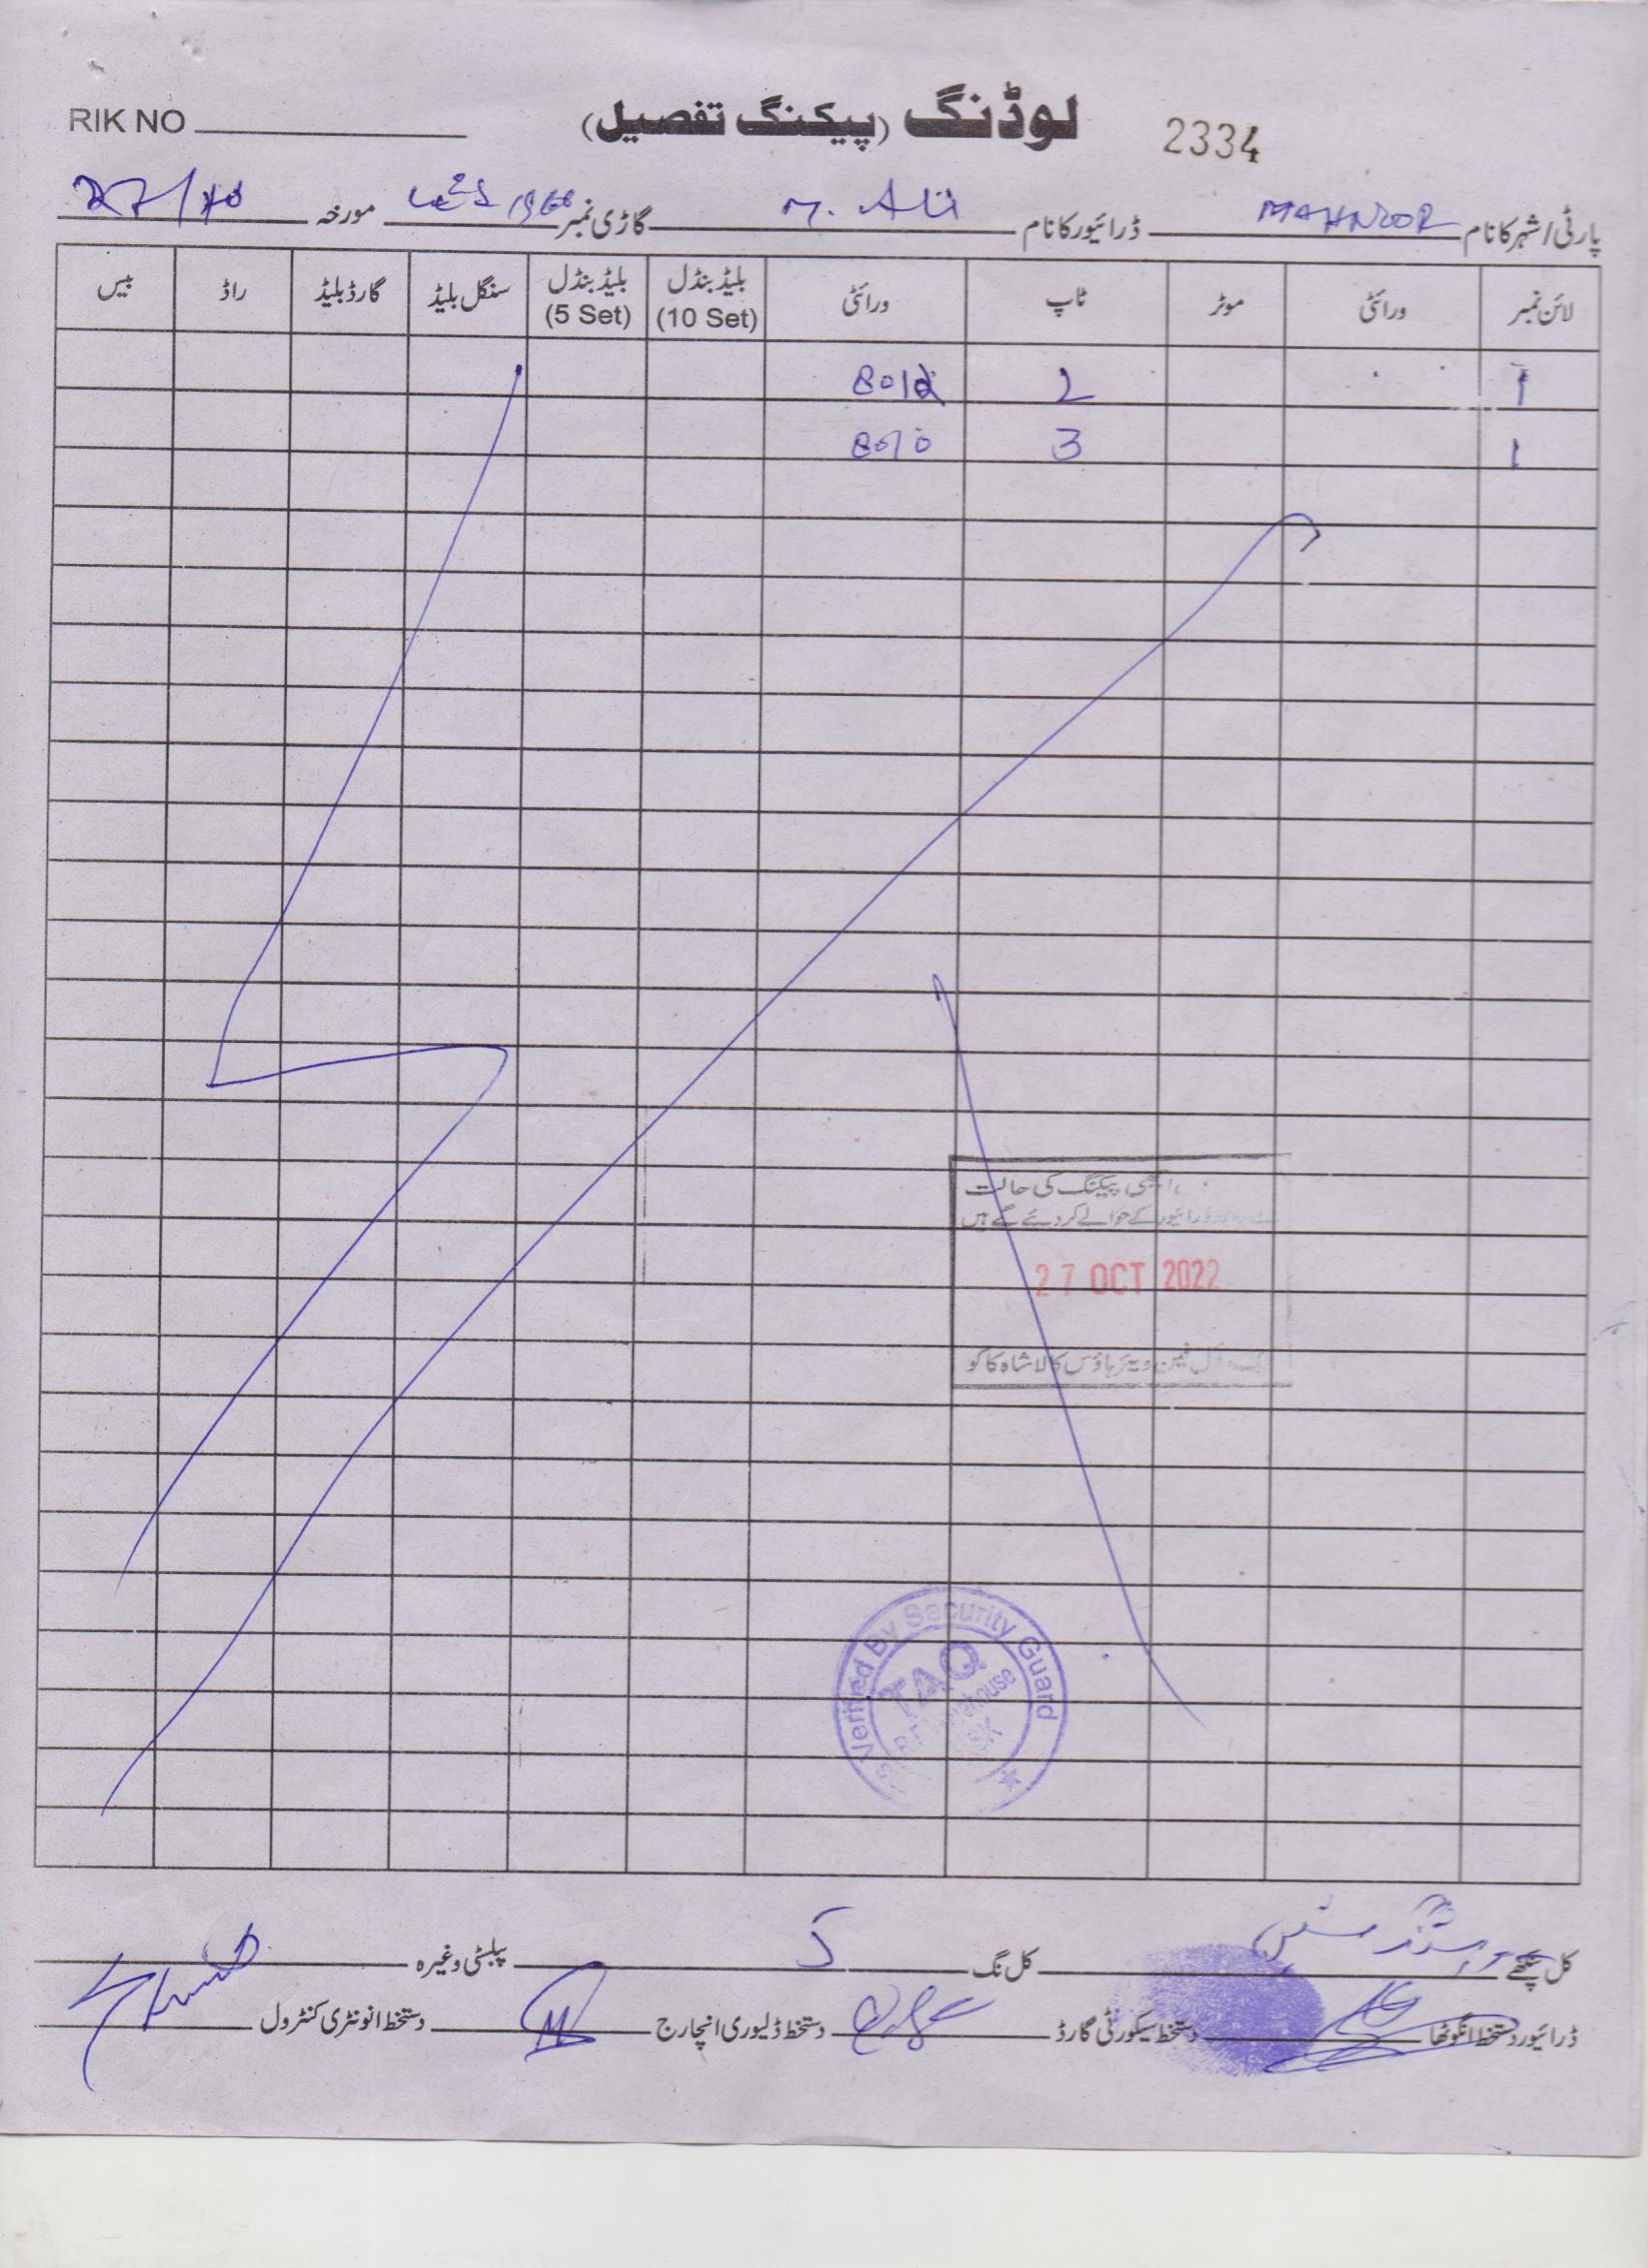 RIK NO
لوڈنگ (پیکنگ تفصیل)
2334
پارٹی/شہر کا نام MAHNOOR ڈرائیور کا نام M. Ali گاڑی نمبر مورخہ 27/10
لائن نمبر ورائٹی موٹر ٹاپ ورائٹی بلیڈ بنڈل (10 Set) بلیڈ بنڈل (5 Set) سنگل بلیڈ گارڈ بلیڈ راڈ بیس
1 2
1 3 8010
پیکنگ کی حالت
ڈرائیور کے حوالے کر دئے گے ہیں
27 OCT 2022
ویئر ہاؤس کالا شاہ کاکو
Verified By Security Guard
TAQ
کل پنکھے کل نگ 5 پبلسٹی وغیرہ
ڈرائیور دستخط انگوٹھا دستخط سیکورٹی گارڈ دستخط ڈلیوری انچارج دستخط انونٹری کنٹرول